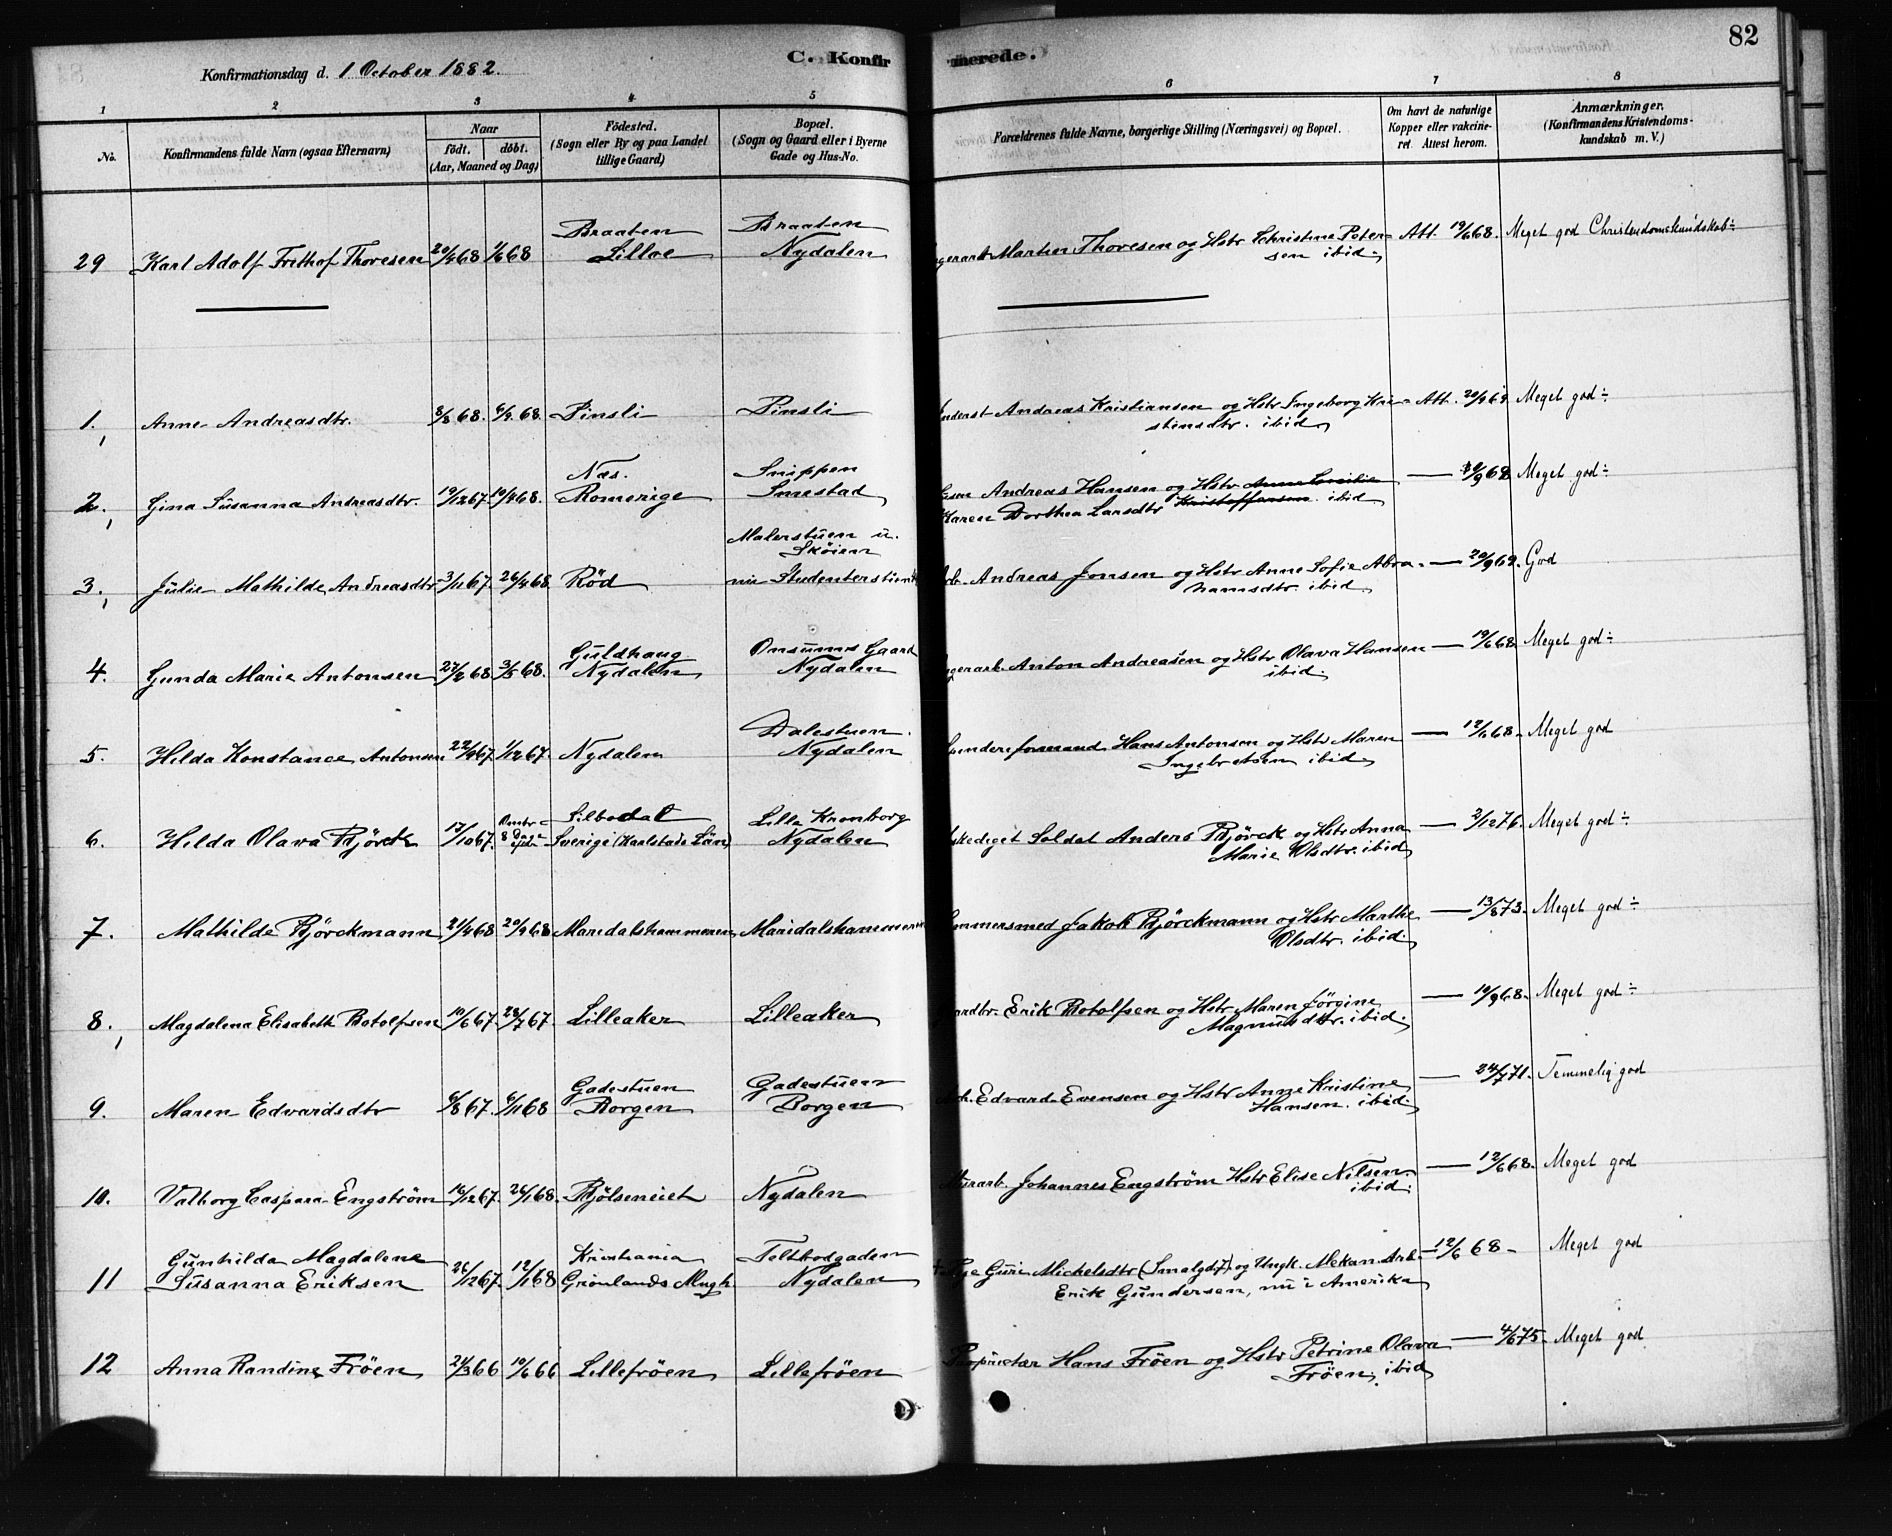 82
C. Konfirmerede.
Konfirmationsdag d. 1 October 1882.
1 2 3 4 5 6 7 8
No. Konfirmandens fulde Navn (ogsaa Efternavn) Naar født. døbt. (Aar, Maaned og Dag) Fødested. (Sogn eller By og paa Landet tillige Gaard) Bopæl. (Sogn og Gaard eller i Byerne Gade og Hus-No. Forældrenes fulde Navne, borgerlige Stilling (Næringsvei) og Bopæl. Om havt de naturlige Kopper eller vakcineret. Attest herom. Anmærkninger. (Konfirmandens Kristendomskundskab m. V.)
29 Karl Adolf Frithof Thoresen 20/4 68 1/6 68 Braaten Lilloe Braaten Nydalen Martin Thoresen og Hstr Christine Petersen ibid. Att. 19/6 68. Meget god Christendomskundskab÷
1. Anne Andreasdtr. 8/8 68. 6/9 68. Pinsli Pinsli Andreas Kristiansen og Hstr Ingeborg Kristensdtr. ibid Att. 20/9 69 Meget god÷
2. Gina Susanna Andreasdtr. 19/12 67. 19/4 68. Næs. Romerige Snippen Smestad Andreas Hansen og Hstr Karen Dorthea Larsdtr Kristoffersen ibid — 9/68 Meget god÷
3. Julie Mathilde Andreasdtr 3/11 67. 26/4 68. Rød Malerstuen u. Skøien Andreas Jonsen og Hstr Anne Sofie Abrahamsdtr. ibid. — 20/9 69. God
4. Gunda Marie Antonsen 27/2 68 3/5 68. Guldhaug Nydalen Onsunns Gaard Nydalen Anton Andreasen og Hstr Olava Hansen ibid — 19/6 68. Meget god÷
5. Hilda Konstance Antonsen 22/9 67. 1/12 67. Nydalen Dalestuen. Nydalen formand Hans Antonsen og Hstr Maren Ingebretsen ibid — 12/6 68. Meget god
6. Hilda Olava Bjørck 17/10 67. 8 Dage Silbodal Sverige (Karlstads Län) Lille Kronborg Nydalen Soldat Anders Bjørck og Hstr Anna Marie Olsdtr. ibid — 2/12 76. Meget god÷
7. Mathilde Bjørckmann 21/4 68 20/9 68 Maridalshammeren Maridalshammeren Jakob Bjørckmann og Hstr Marthe Olsdtr. ibid. — 13/8 73. Meget god÷
8. Magdalena Elisabeth Botolfsen 10/6 67. 28/7 67. Lilleaker Lilleaker Erik Botolfsen og Hstr Maren Jørgine Magnusdtr. ibid. — 19/9 68. Meget god÷
9. Maren Edvardsdtr 6/8 67. 6/11 68 Gadestuen Borgen Gadestuen Borgen Edvard Evensen og Hstr Anne Kristine Hansen. ibid. — 24/7 71. Temmelig god
10. Valborg Caspara Engstrøm 16/12 67. 26/1 68. Bjølseneiet Nydalen Johannes Engstrøm Hstr Elise Nilsen ibid. — 12/6 68. Meget god
11 Gunhilda Magdalene Susanna Eriksen 26/12 67. 12/1 68 Kristiania Grønlands Mngh. Teltbodgaden Nydalen Pige Guri Michelsdtr (Smalgd 7) og Ungk. Mekan. Arb. Erik Gundersen, nu i Amerika — 12/6 68 – Meget god
12 Anna Randine Frøen 21/3 66 10/6 66 Lillefrøen Lillefrøen Proprietær Hans Frøen og Hstr Petrine Olava Frøen. ibid — 4/6 75. Meget god